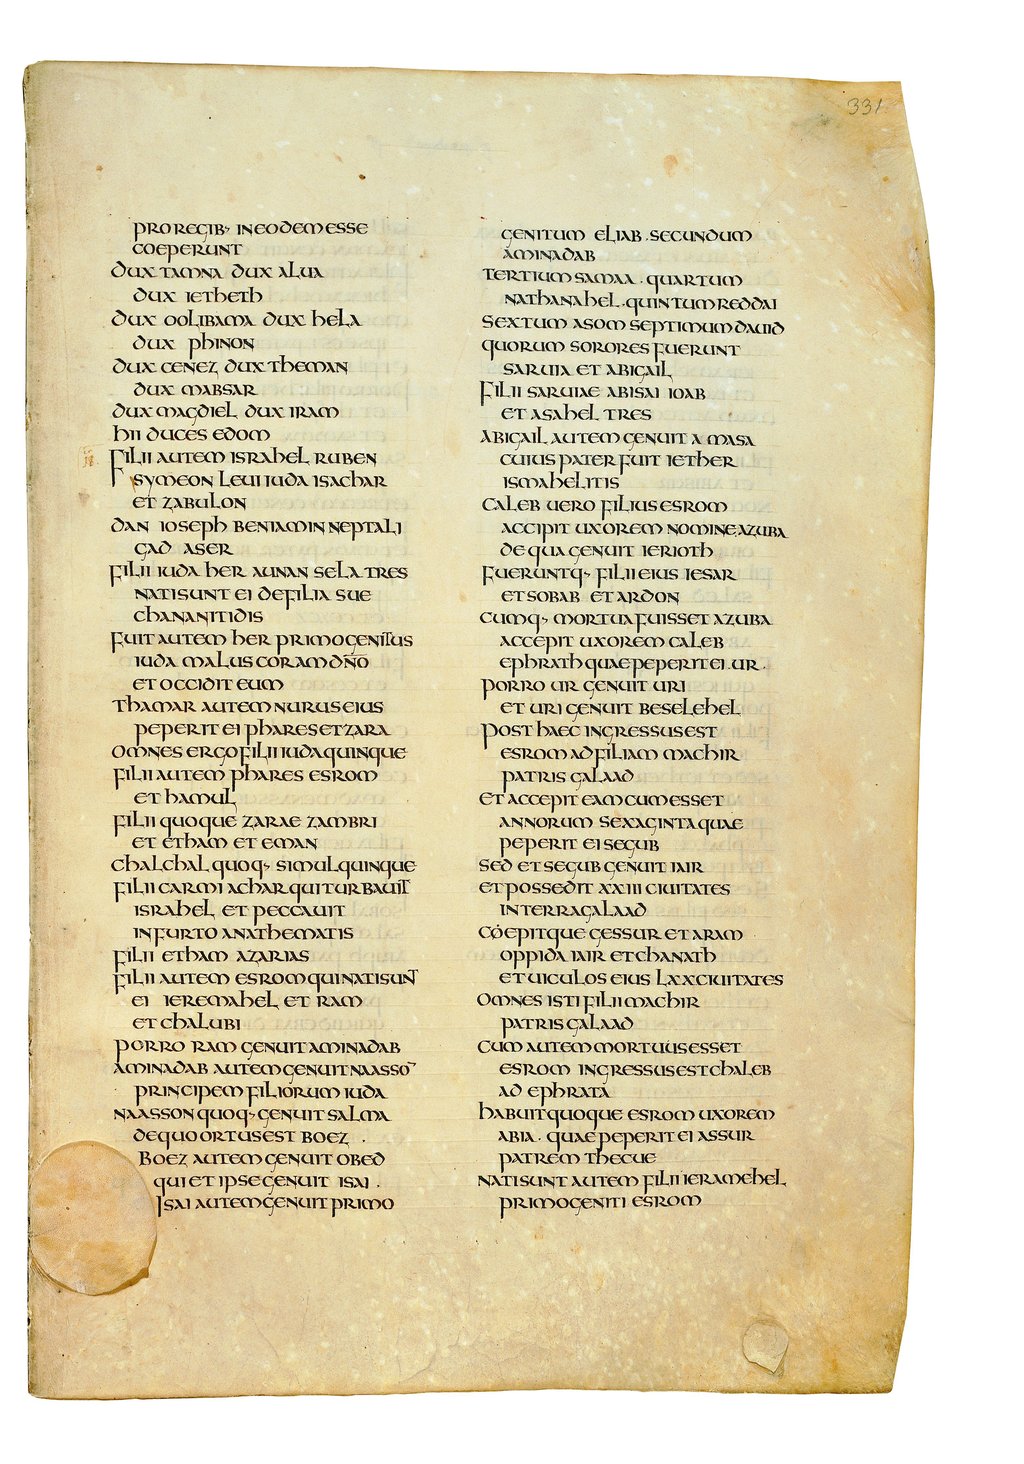 331
PRO REGIB· IN EODEM ESSE
COEPERUNT
DUX TAMNA DUX ALUA
DUX IETHETH
DUX OOLIBAMA DUX HELA
DUX PHINON
DUX CENEZ DUX THEMAN
DUX MABSAR
DUX MAGDIEL DUX IRAM
HII DUCES EDOM
II FILII AUTEM ISRAHEL RUBEN
SYMEON LEUI IUDA ISACHAR
ET ZABULON
DAN IOSEPH BENIAMIN NEPTALI
GAD ASER
FILII IUDA HER AUNAN SELA TRES
NATI SUNT EI DE FILIA SUE
CHANANITIDIS
FUIT AUTEM HER PRIMOGENITUS
IUDA MALUS CORAM DÑO
ET OCCIDIT EUM
THAMAR AUTEM NURUS EIUS
PEPERIT EI PHARES ET ZARA
OMNES ERGO FILII IUDA QUINQUE
FILII AUTEM PHARES ESROM
ET HAMUL
FILII QUOQUE ZARAE ZAMBRI
ET ETHAM ET EMAN
CHALCHAL QUOQ· SIMUL QUINQUE
FILII CARMI ACHAR QUI TURBAUIT
ISRAHEL ET PECCAUIT
IN FURTO ANATHEMATIS
FILII ETHAM AZARIAS
FILII AUTEM ESROM QUI NATI SUNT
EI IEREMAHEL ET RAM
ET CHALUBI
PORRO RAM GENUIT AMINADAB
AMINADAB AUTEM GENUIT NAASSO¯
PRINCIPEM FILIORUM IUDA
NAASSON QUOQ· GENUIT SALMA
DE QUO ORTUS EST BOEZ ·
BOEZ AUTEM GENUIT OBED
QUI ET IPSE GENUIT ISAI ·
ISAI AUTEM GENUIT PRIMO
GENITUM ELIAB · SECUNDUM
AMINADAB
TERTIUM SAMAA · QUARTUM
NATHANAHEL · QUINTUM REDDAI
SEXTUM ASOM SEPTIMUM DAUID
QUORUM SORORES FUERUNT
SARUIA ET ABIGAIL
FILII SARUIAE ABISAI IOAB
ET ASAHEL TRES
ABIGAIL AUTEM GENUIT AMASA
CUIUS PATER FUIT IETHER
ISMAHELITIS
CALEB UERO FILIUS ESROM
ACCIPIT UXOREM NOMINE AZUBA
DE QUA GENUIT IERIOTH
FUERUNTQ· FILII EIUS IESAR
ET SOBAB ET ARDON
CUMQ· MORTUA FUISSET AZUBA
ACCEPIT UXOREM CALEB
EPHRATH QUAE PEPERIT EI UR ·
PORRO UR GENUIT URI
ET URI GENUIT BESELEHEL
POST HAEC INGRESSUS EST
ESROM AD FILIAM MACHIR
PATRIS GALAAD
ET ACCEPIT EAM CUM ESSET
ANNORUM SEXAGINTA QUAE
PEPERIT EI SEGUB
SED ET SEGUB GENUIT IAIR
ET POSSEDIT XXIII CIUITATES
IN TERRA GALAAD
COEPITQUE GESSUR ET ARAM
OPPIDA IAIR ET CHANATH
ET UICULOS EIUS LXX CIUITATES
OMNES ISTI FILII MACHIR
PATRIS GALAAD
CUM AUTEM MORTUUS ESSET
ESROM INGRESSUS EST CHALEB
AD EPHRATA
HABUIT QUOQUE ESROM UXOREM
ABIA · QUAE PEPERIT EI ASSUR
PATREM THECUE
NATI SUNT AUTEM FILII IERAMEHEL
PRIMOGENITI ESROM